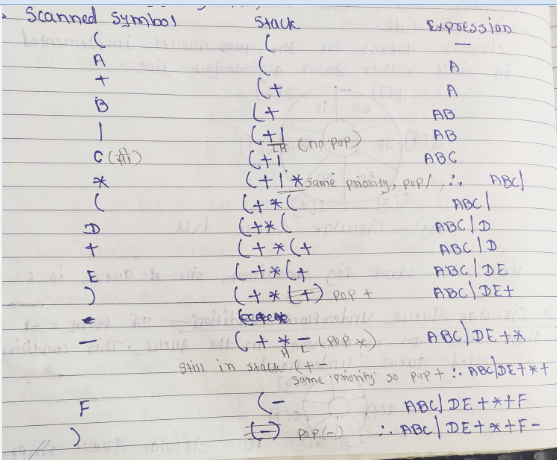 Scanned symbol Stack Expression
( ( —
A ( A
+ (+ A
B (+ AB
/ (+/ (no pop) AB
C (+/ ABC
* (+/* same priority, pop /, ∴ ABC/
( (+*( ABC/
D (+*( ABC/D
+ (+*(+ ABC/D
E (+*(+ ABC/DE
) (+*(+) pop + ABC/DE+
- (+*- (pop *) ABC/DE+*
H L
Still in stack (+-
same priority so pop + ∴ ABC/DE+*+
F (- ABC/DE+*+F
) (-) pop(-) ∴ ABC/DE+*+F-